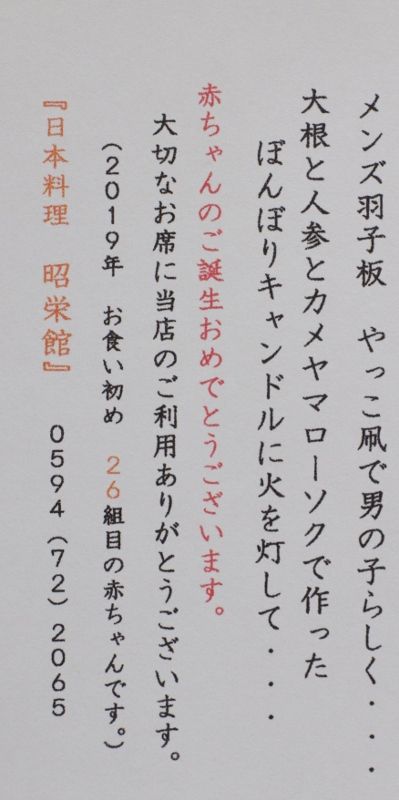 メンズ羽子板　やっこ凧で男の子らしく・・・
大根と人参とカメヤマローソクで作った
ぼんぼりキャンドルに火を灯して・・・
赤ちゃんのご誕生おめでとうございます。
大切なお席に当店のご利用ありがとうございます。
(2019年　お食い初め　26組目の赤ちゃんです。)
『日本料理　昭栄館』　0594(72)2065